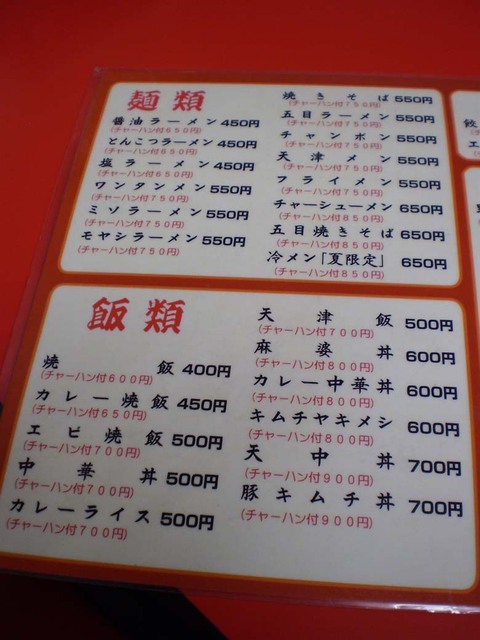 麺類
醤油ラーメン 450円
(チャーハン付650円)
とんこつラーメン 450円
(チャーハン付650円)
塩ラーメン 450円
(チャーハン付650円)
ワンタンメン 550円
(チャーハン付750円)
ミソラーメン 550円
(チャーハン付750円)
モヤシラーメン 550円
(チャーハン付750円)
焼きそば 550円
(チャーハン付750円)
五目ラーメン 550円
(チャーハン付750円)
チャンポン 550円
(チャーハン付750円)
天津メン 550円
(チャーハン付750円)
フライメン 550円
(チャーハン付750円)
チャーシューメン 650円
(チャーハン付850円)
五目焼きそば 650円
(チャーハン付850円)
冷メン「夏限定」 650円
(チャーハン付850円)
飯類
焼飯 400円
(チャーハン付600円)
カレー焼飯 450円
(チャーハン付650円)
エビ焼飯 500円
(チャーハン付700円)
中華丼 500円
(チャーハン付700円)
カレーライス 500円
(チャーハン付700円)
天津飯 500円
(チャーハン付700円)
麻婆丼 600円
(チャーハン付800円)
カレー中華丼 600円
(チャーハン付800円)
キムチヤキメシ 600円
(チャーハン付800円)
天中丼 700円
(チャーハン付900円)
豚キムチ丼 700円
(チャーハン付900円)